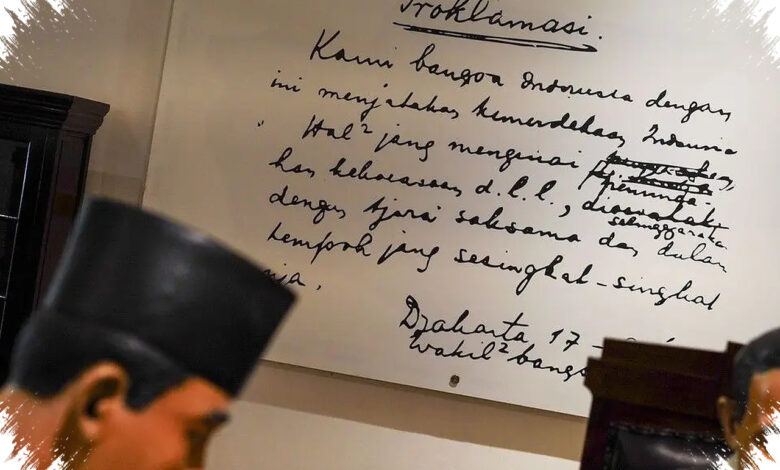 Proklamasi.
Kami bangsa Indonesia dengan
ini menjatakan kemerdekaan Indonesia
Hal² jang mengenai
peminda-
han kekoeasaan d.l.l., diselenggarakan
dengan tjara saksama dan dalam
tempoh jang sesingkat-singkat
nja.
Djakarta 17 -
Wakil² bangs